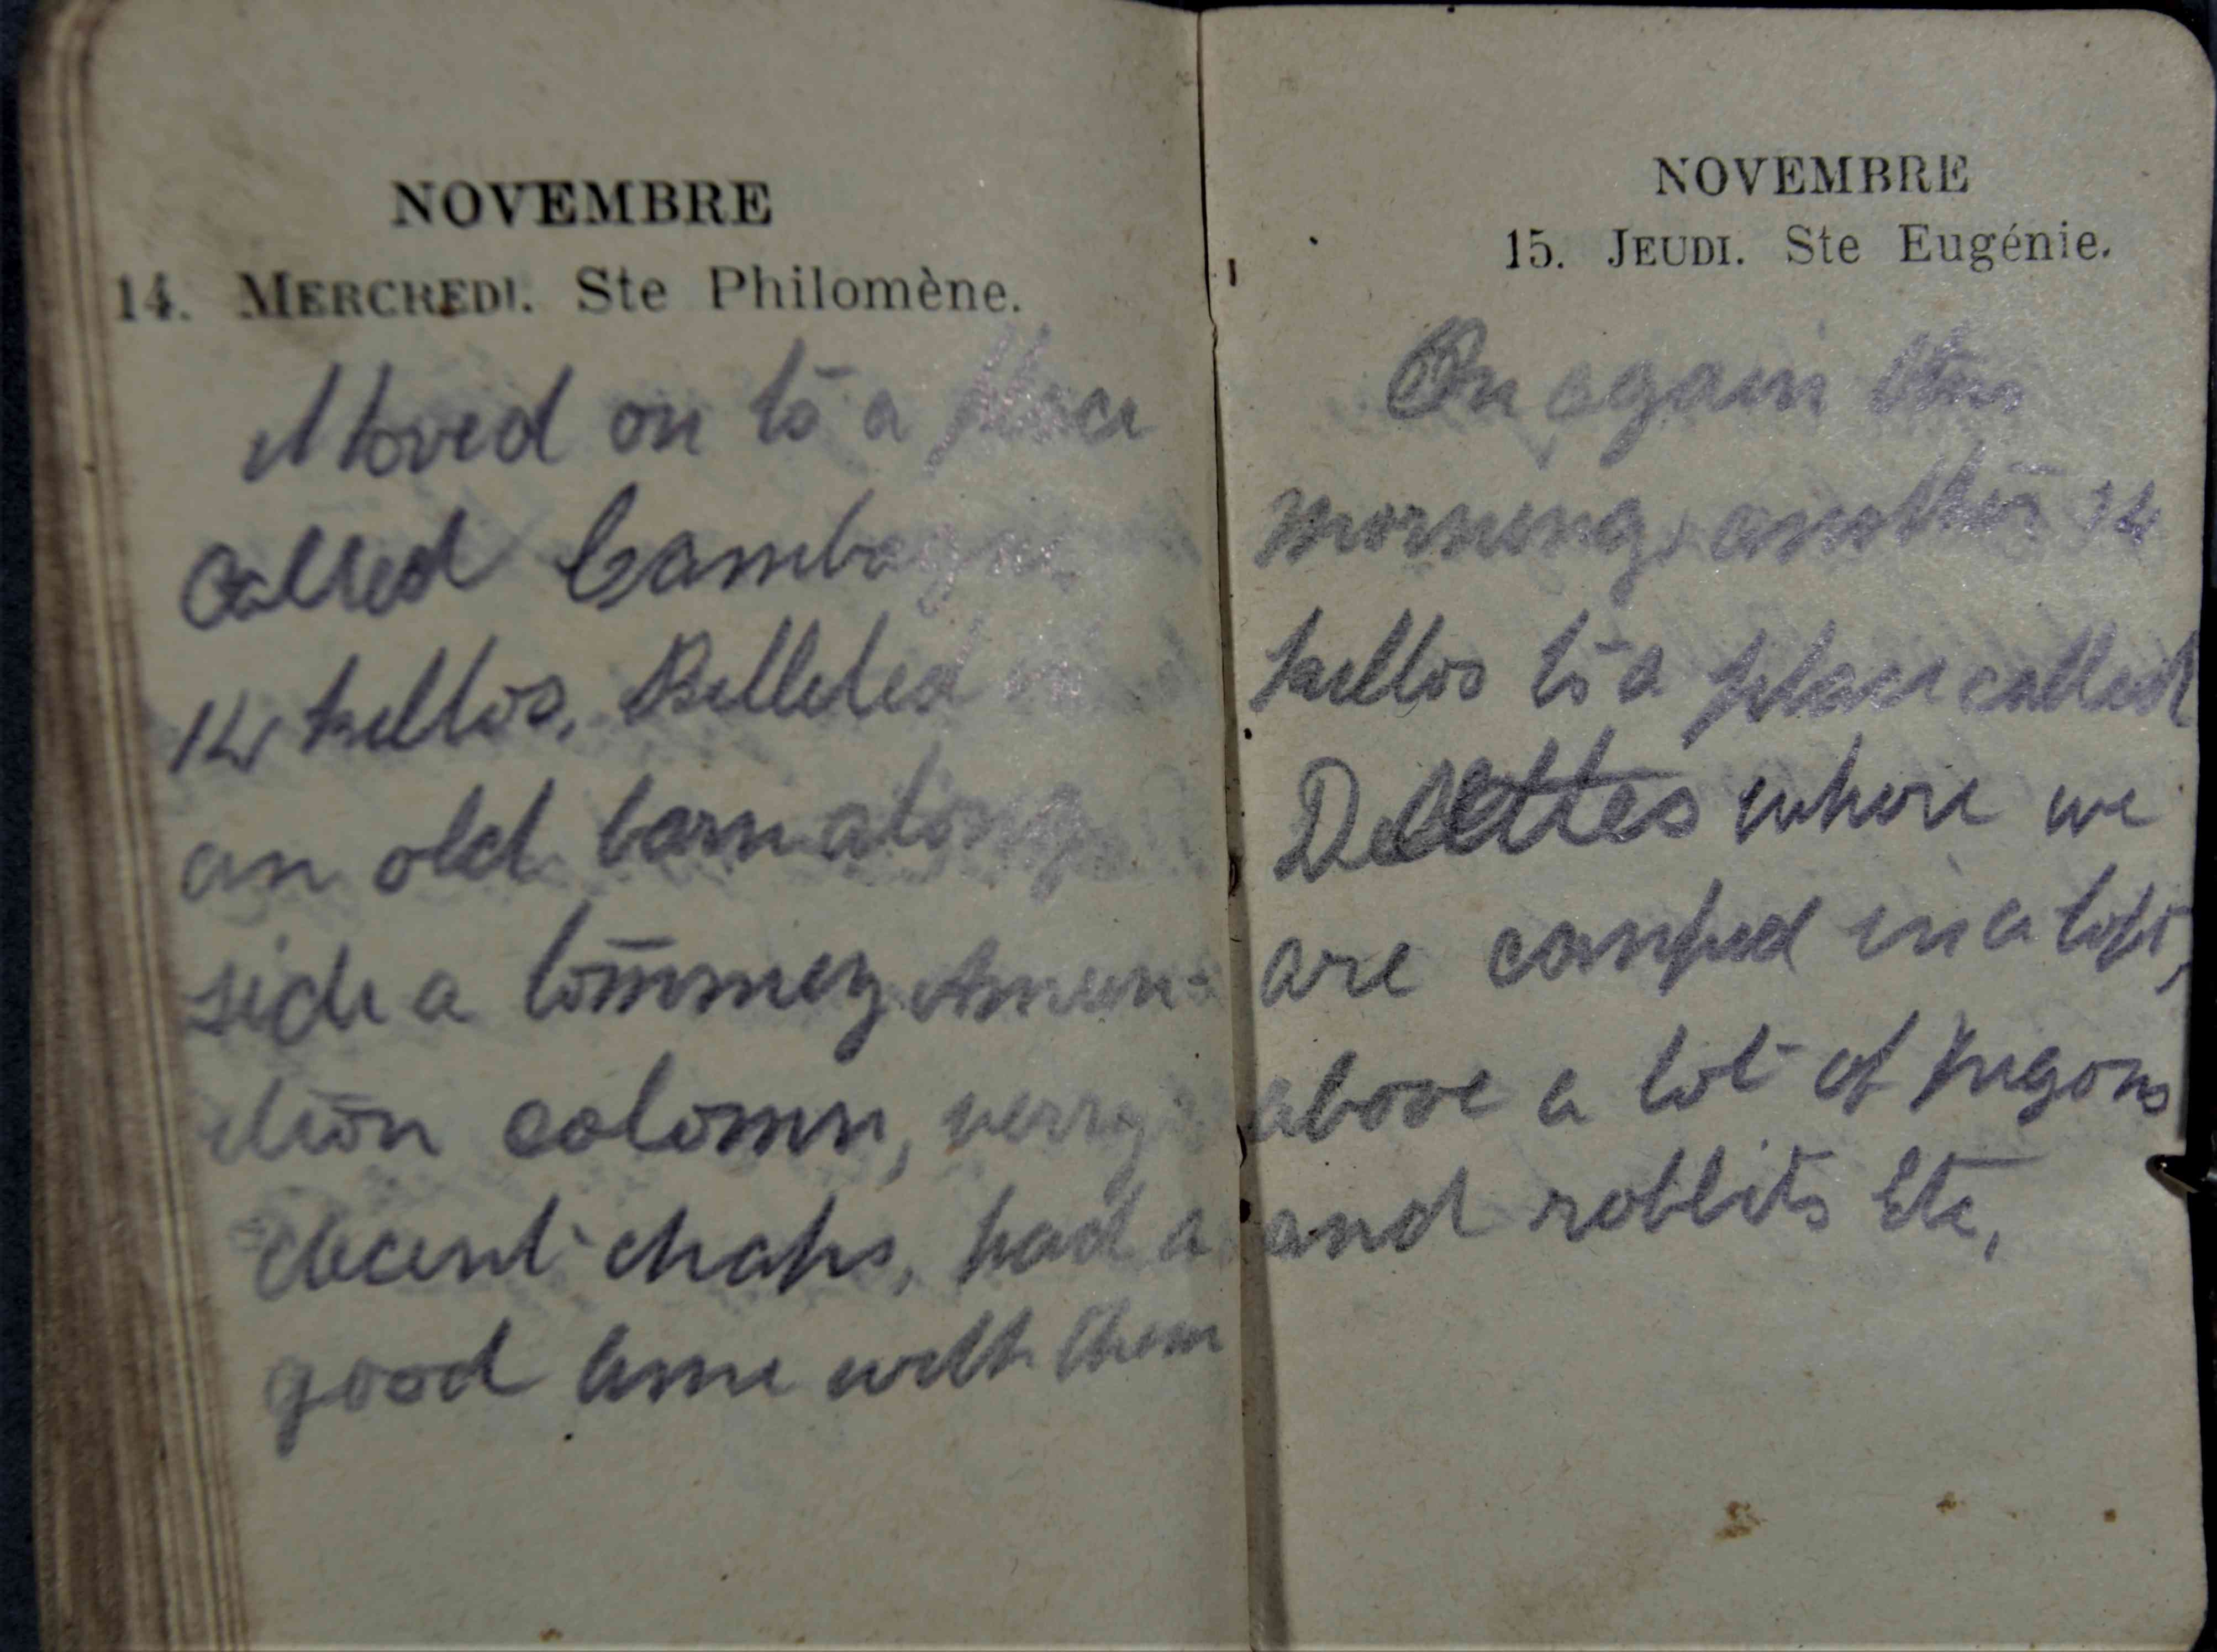 NOVEMBRE
14. MERCREDI. Ste Philomène.
Moved on to a place
called
14 killos, Billeted in
an old barn along
side a tommey Amuni-
ition colomn, verry
decent chaps, had a
good time with them
NOVEMBRE
15. JEUDI. Ste Eugénie.
On again this
morning, another 14
killos to a place called
Delettes where we
are camped in a loft,
above a lot of pigons
and rabbits Etc,